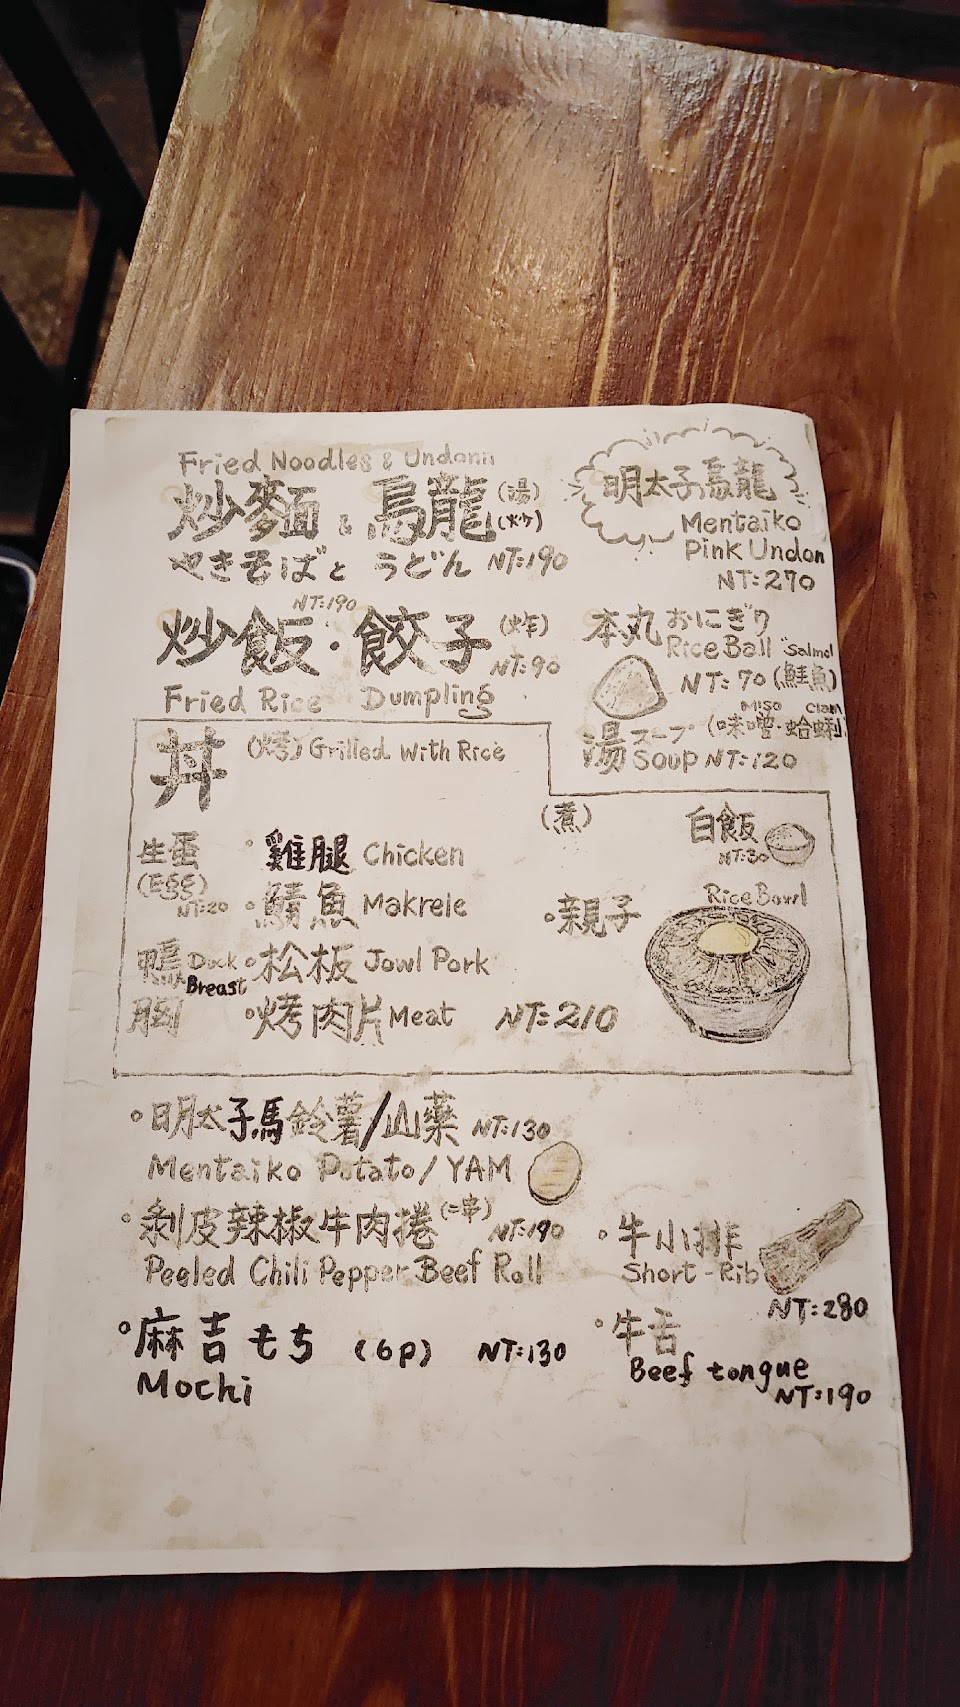 Fried Noodles & Undon
炒麵 & 烏龍 (湯) (炒)
やきそばと うどん NT:190
明太子烏龍
Mentaiko
Pink Undon
NT:270
NT:190
炒飯・餃子 (炸) NT:90
Fried Rice Dumpling
本丸 おにぎり
Rice Ball "Salmol
NT:70 (鮭魚)
Miso Clam
湯 スープ (味噌・蛤蜊)
Soup NT:120
丼 (烤) Grilled With Rice
生蛋
(Egg)
NT:20
鴨胸 Duck Breast
• 雞腿 Chicken
• 鯖魚 Makrele
• 松板 Jowl Pork
• 烤肉片 Meat NT:210
(煮)
• 親子
白飯
NT:30
Rice Bowl
• 明太子馬鈴薯/山藥 NT:130
Mentaiko Potato/YAM
• 剝皮辣椒牛肉捲 (二串) NT:190
Peeled Chili Pepper Beef Roll
• 牛小排
Short-Rib
NT:280
• 麻吉もち (6P) NT:130
Mochi
• 牛舌
Beef tongue
NT:190